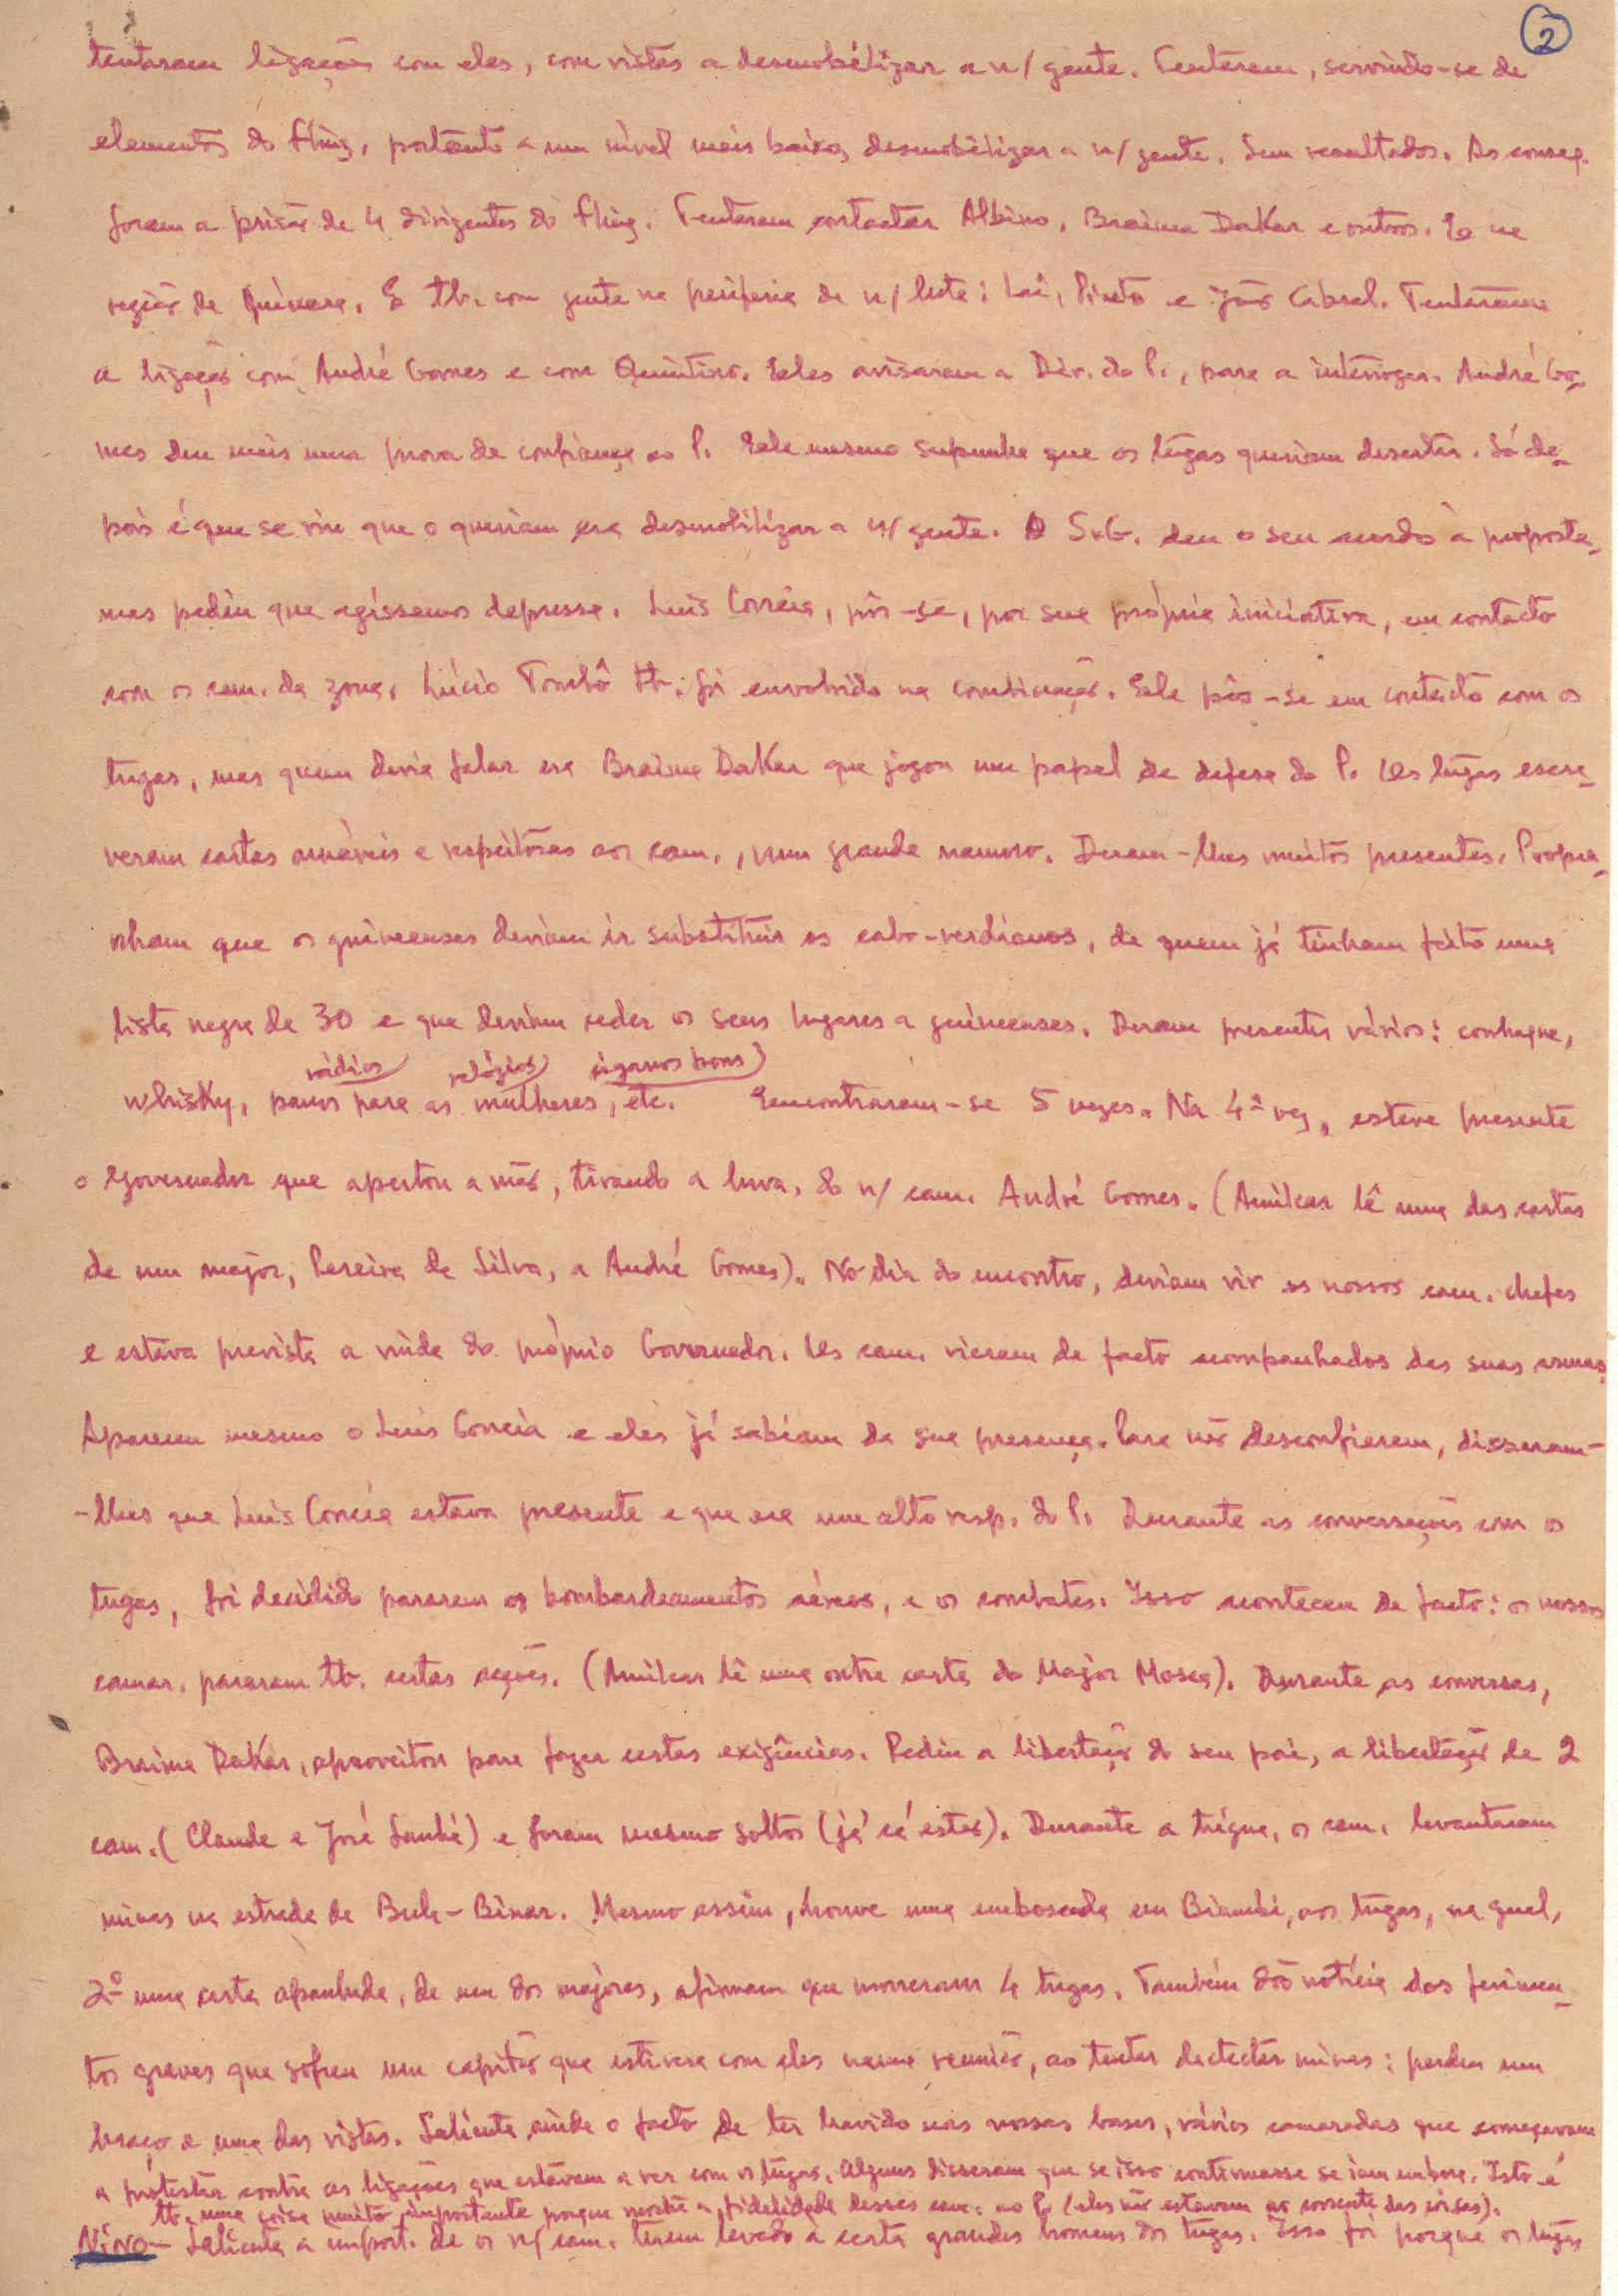 2
tentaram ligações com eles, com vistas a desmobilizar a n/ gente. Tentaram, servindo-se de
elementos do Fling, portanto a um nível mais baixo, desmobilizar a n/ gente. Sem resultados. As conseq.
foram a prisão de 4 dirigentes do Fling. Tentaram contactar Albino, Braima Dakar e outros. E na
região de Quínara. E tb. com gente na periferia da n/ luta: Laí, Pinto e João Cabral. Tentaram
a ligação com André Gomes e com Quintino. Eles avisaram a Dir. do P., para a interrogar. André Go-
mes deu mais uma prova de confiança ao P. Ele mesmo supunha que os tugas queriam desertar. Só de-
pois é que se viu que o queriam era desmobilizar a n/ gente. O S.G. deu o seu acordo à proposta,
mas pediu que agíssemos depressa. Luís Correia, pôs-se, por sua própria iniciativa, em contacto
com os cam. da zona. Lúcio Tombô tb. foi envolvido na combinação. Ele pôs-se em contacto com os
tugas, mas quem devia falar era Braima Dakar que jogou um papel de defesa do P. Os tugas escre-
veram cartas amáveis e respeitosas aos cam., num grande namoro. Deram-lhes muitos presentes. Propu-
nham que os guineenses deviam ir substituir os cabo-verdianos, de quem já tinham feito uma
lista negra de 30 e que deviam ceder os seus lugares a guineenses. Deram presentes vários: conhaque,
rádios relógios cigarros bons
whisky, panos para as mulheres, etc. Encontraram-se 5 vezes. Na 4ª vez, esteve presente
o Governador que apertou a mão, tirando a luva, do n/ cam. André Gomes. (Amílcar lê uma das cartas
de um major, Pereira da Silva, a André Gomes). No dia do encontro, deviam vir os nossos cam. chefes
e estava prevista a vinda do próprio Governador. Os cam. vieram de facto acompanhados das suas armas.
Apareceu mesmo o Luís Correia e eles já sabiam da sua presença. Para não desconfiarem, disseram-
-lhes que Luís Correia estava presente e que era um alto resp. do P. Durante as conversações com os
tugas, foi decidido pararem os bombardeamentos aéreos, e os combates. Isso aconteceu de facto: os nossos
camar. pararam tb. certas acções. (Amílcar lê uma outra carta do Major Mosca). Durante as conversas,
Braima Dakar, aproveitou para fazer certas exigências. Pediu a libertação do seu pai, a libertação de 2
cam. (Claude e José Sanhá) e foram mesmo soltos (já cá estão). Durante a trégua, os cam. levantaram
minas na estrada de Bula-Binar. Mesmo assim, houve uma emboscada em Biambi, aos tugas, na qual,
2º uma carta apanhada, de um dos majores, afirmam que morreram 4 tugas. Também dão notícia dos ferimen-
tos graves que sofreu um capitão que estivera com eles numa reunião, ao tentar dectectar minas: perdeu um
braço e uma das vistas. Salienta ainda o facto de ter havido nas nossas bases, vários camaradas que começavam
a protestar contra as ligações que estavam a ver com os tugas. Alguns disseram que se isso continuasse se iam embora. Isto é
tb. uma coisa muito importante porque mostra a fidelidade desses cam. ao P. (eles não estavam ao corrente das coisas).
Nino - Salienta a import. de os n/ cam. terem levado à certa grandes homens dos tugas. Isso foi porque os tugas